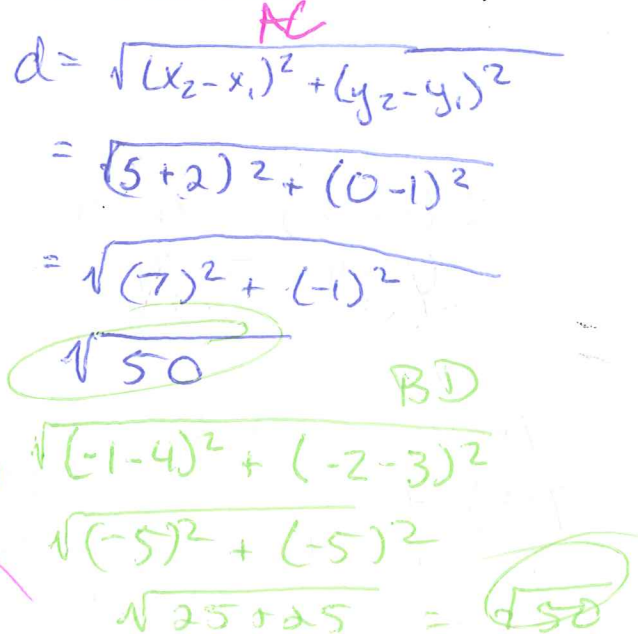 AC
d = √(x₂-x₁)² + (y₂-y₁)²
= √(5+2)² + (0-1)²
= √(7)² + (-1)²
√50
BD
√(-1-4)² + (-2-3)²
√(-5)² + (-5)²
√25+25 = √50